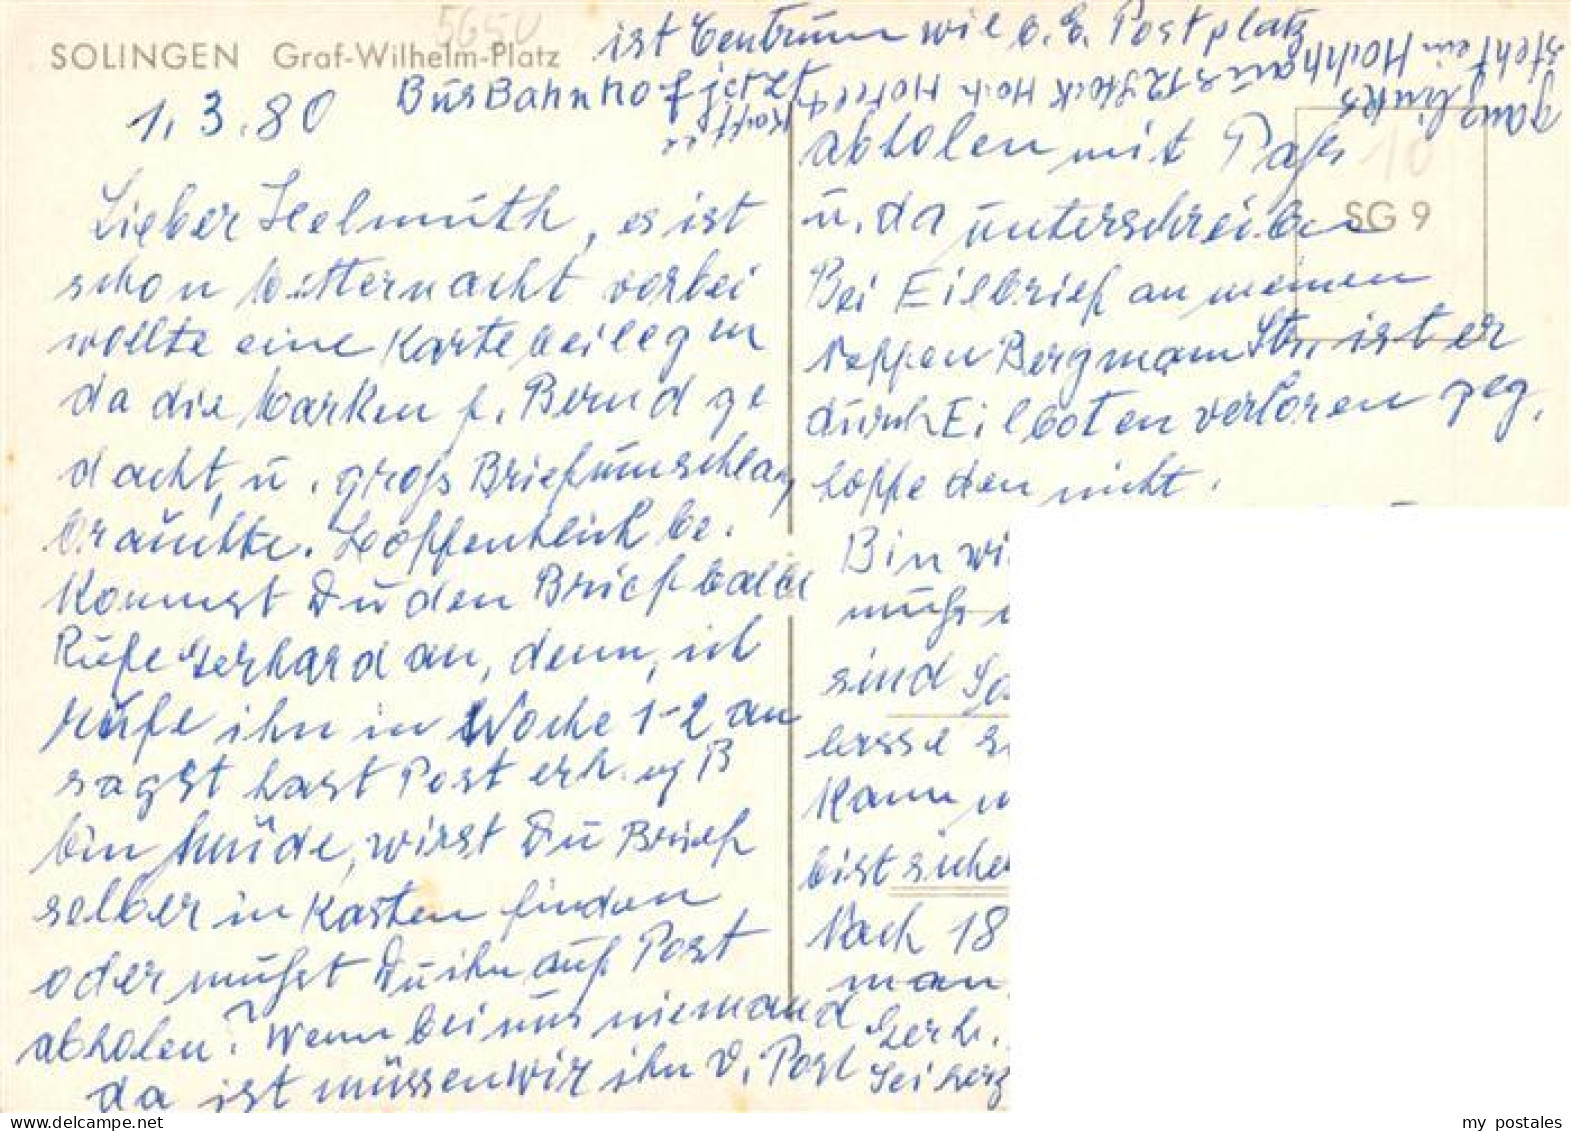 5650
SOLINGEN Graf-Wilhelm-Platz
ist Centrum wie b. E. Postplatz
BusBahnhof jetzt
ganz links
steht ein Hochhaus 12 Stock Hoch Hotel
1.3.80
Lieber Helmuth, es ist
schon Mitternacht vorbei
wollte eine Karte beilegen
da die Marken f. Bernd ge
dacht, u. groß Briefumschlag
brauchte. Hoffentlich be.
kommst Du den Brief bald
Rufe Gerhard an, denn, ich
rufe ihn in Woche 1-2 an
sagst hast Post erh.
bin müde, wirst Du Brief
selber in Kasten finden
oder mußt Du ihn auf Post
abholen? Wenn bei uns niemand
da ist müssen wir ihn v. Post
abholen mit Paß
u. da unterschreiben
Bei Eilbrief an meinen
Neffen Bergmann Str. ist er
durch Eilboten verloren geg.
hoffe den nicht.
Bin wi
muß
sind
Kann
bist sicher
Nach 18
man
Gerh.
Sei herz
10
SG 9
my postales